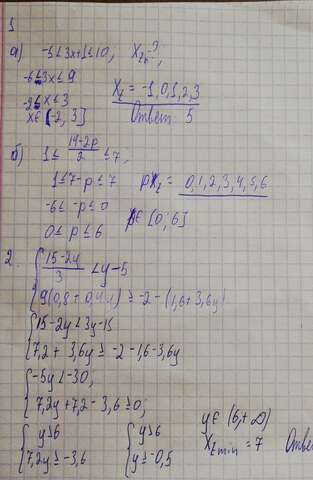 1
а) -5<3x+1≤10, X_Z-?,
-6<3x≤9
-2<x≤3 X_Z = -1,0,1,2,3
x∈(-2, 3] Ответ: 5
б) 1≤ (14-2p)/2 ≤7,
1≤7-p≤7 p_Z = 0,1,2,3,4,5,6
-6≤ -p≤0
0≤ p≤6 p∈ [0; 6]
2. { (15-2y)/3 < y-5
9(0,8+0,4y) ≥ -2-(1,6+3,6y)
{ 15-2y<3y-15
7,2+3,6y≥ -2-1,6-3,6y
{ -5y<-30,
7,2y+7,2-3,6≥0;
{ y>6 { y>6 y∈ (6,+∞)
7,2y≥-3,6 y≥-0,5 X_Z min = 7 Ответ